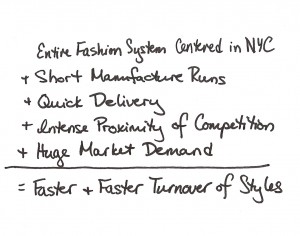 Entire Fashion System Centered in NYC
+ Short Manufacture Runs
+ Quick Delivery
+ Intense Proximity of Competition
+ Huge Market Demand
= Faster + Faster Turnover of Styles